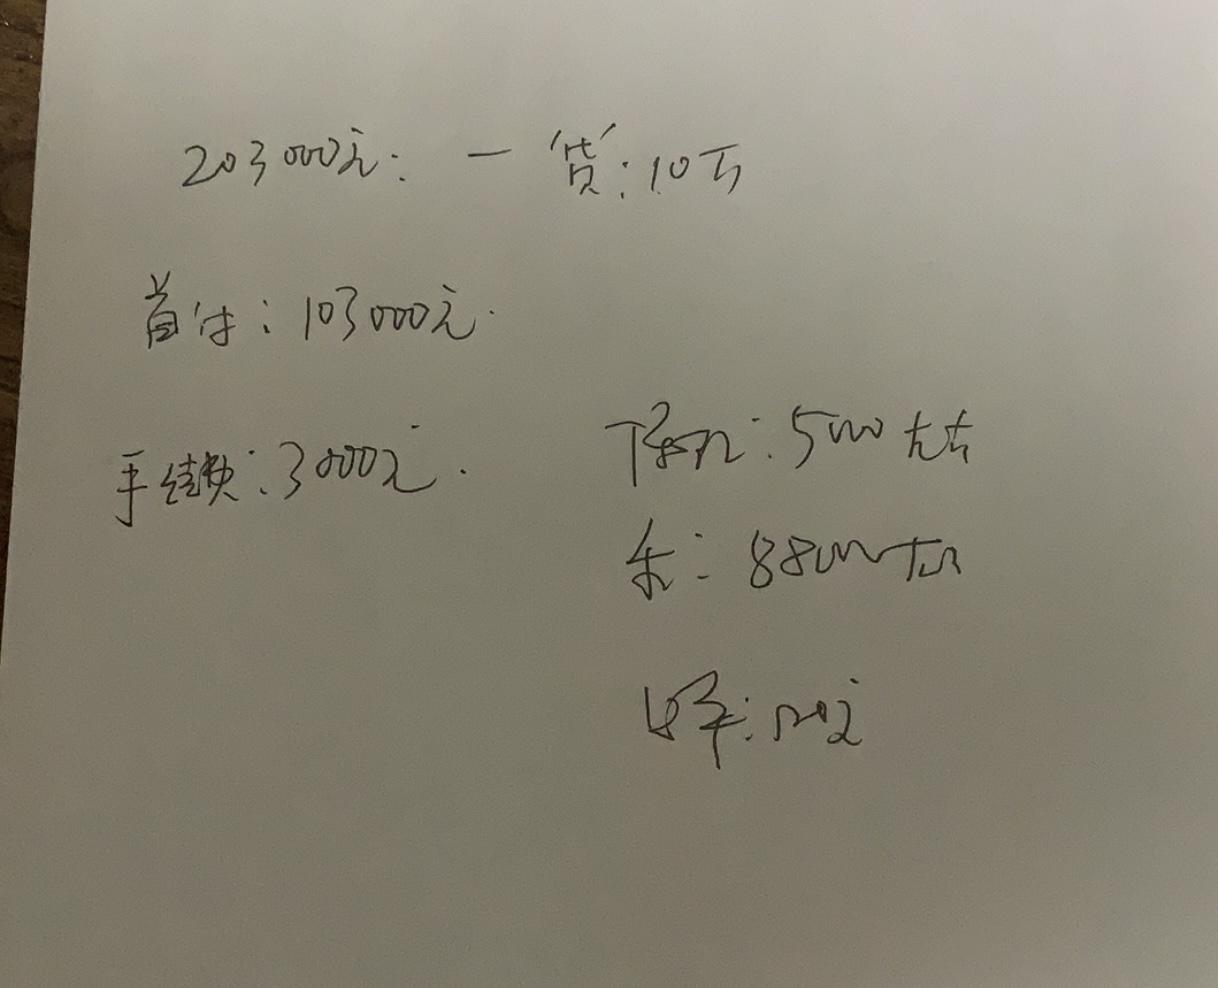 203000元: 一货:10万
首付:103000元.
手续费:3000元.
保险:5000左右
车:8800左右